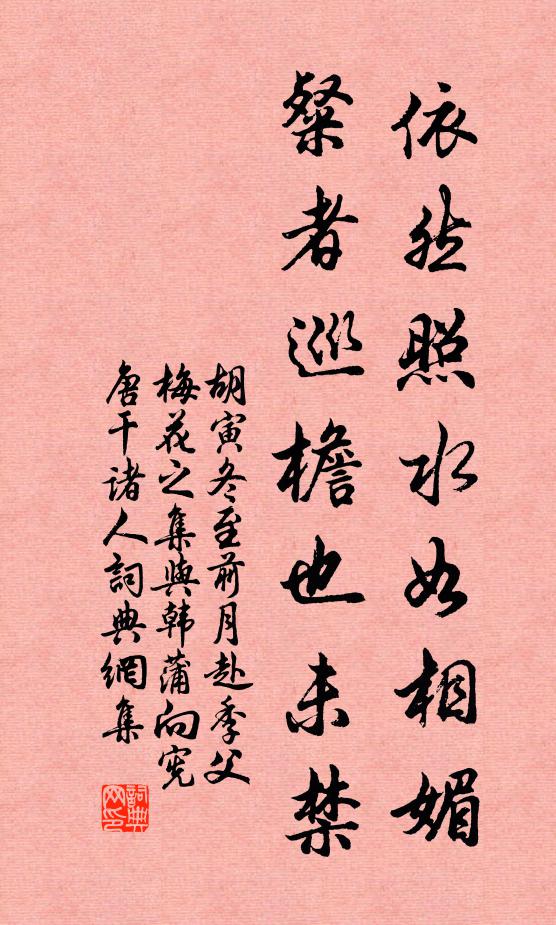 依然照水如相媚
粲者巡檐也未禁
胡寅冬至前月赴季父
梅花之集與韩蒲向宪
唐干诸人詞典網集
詞典网印